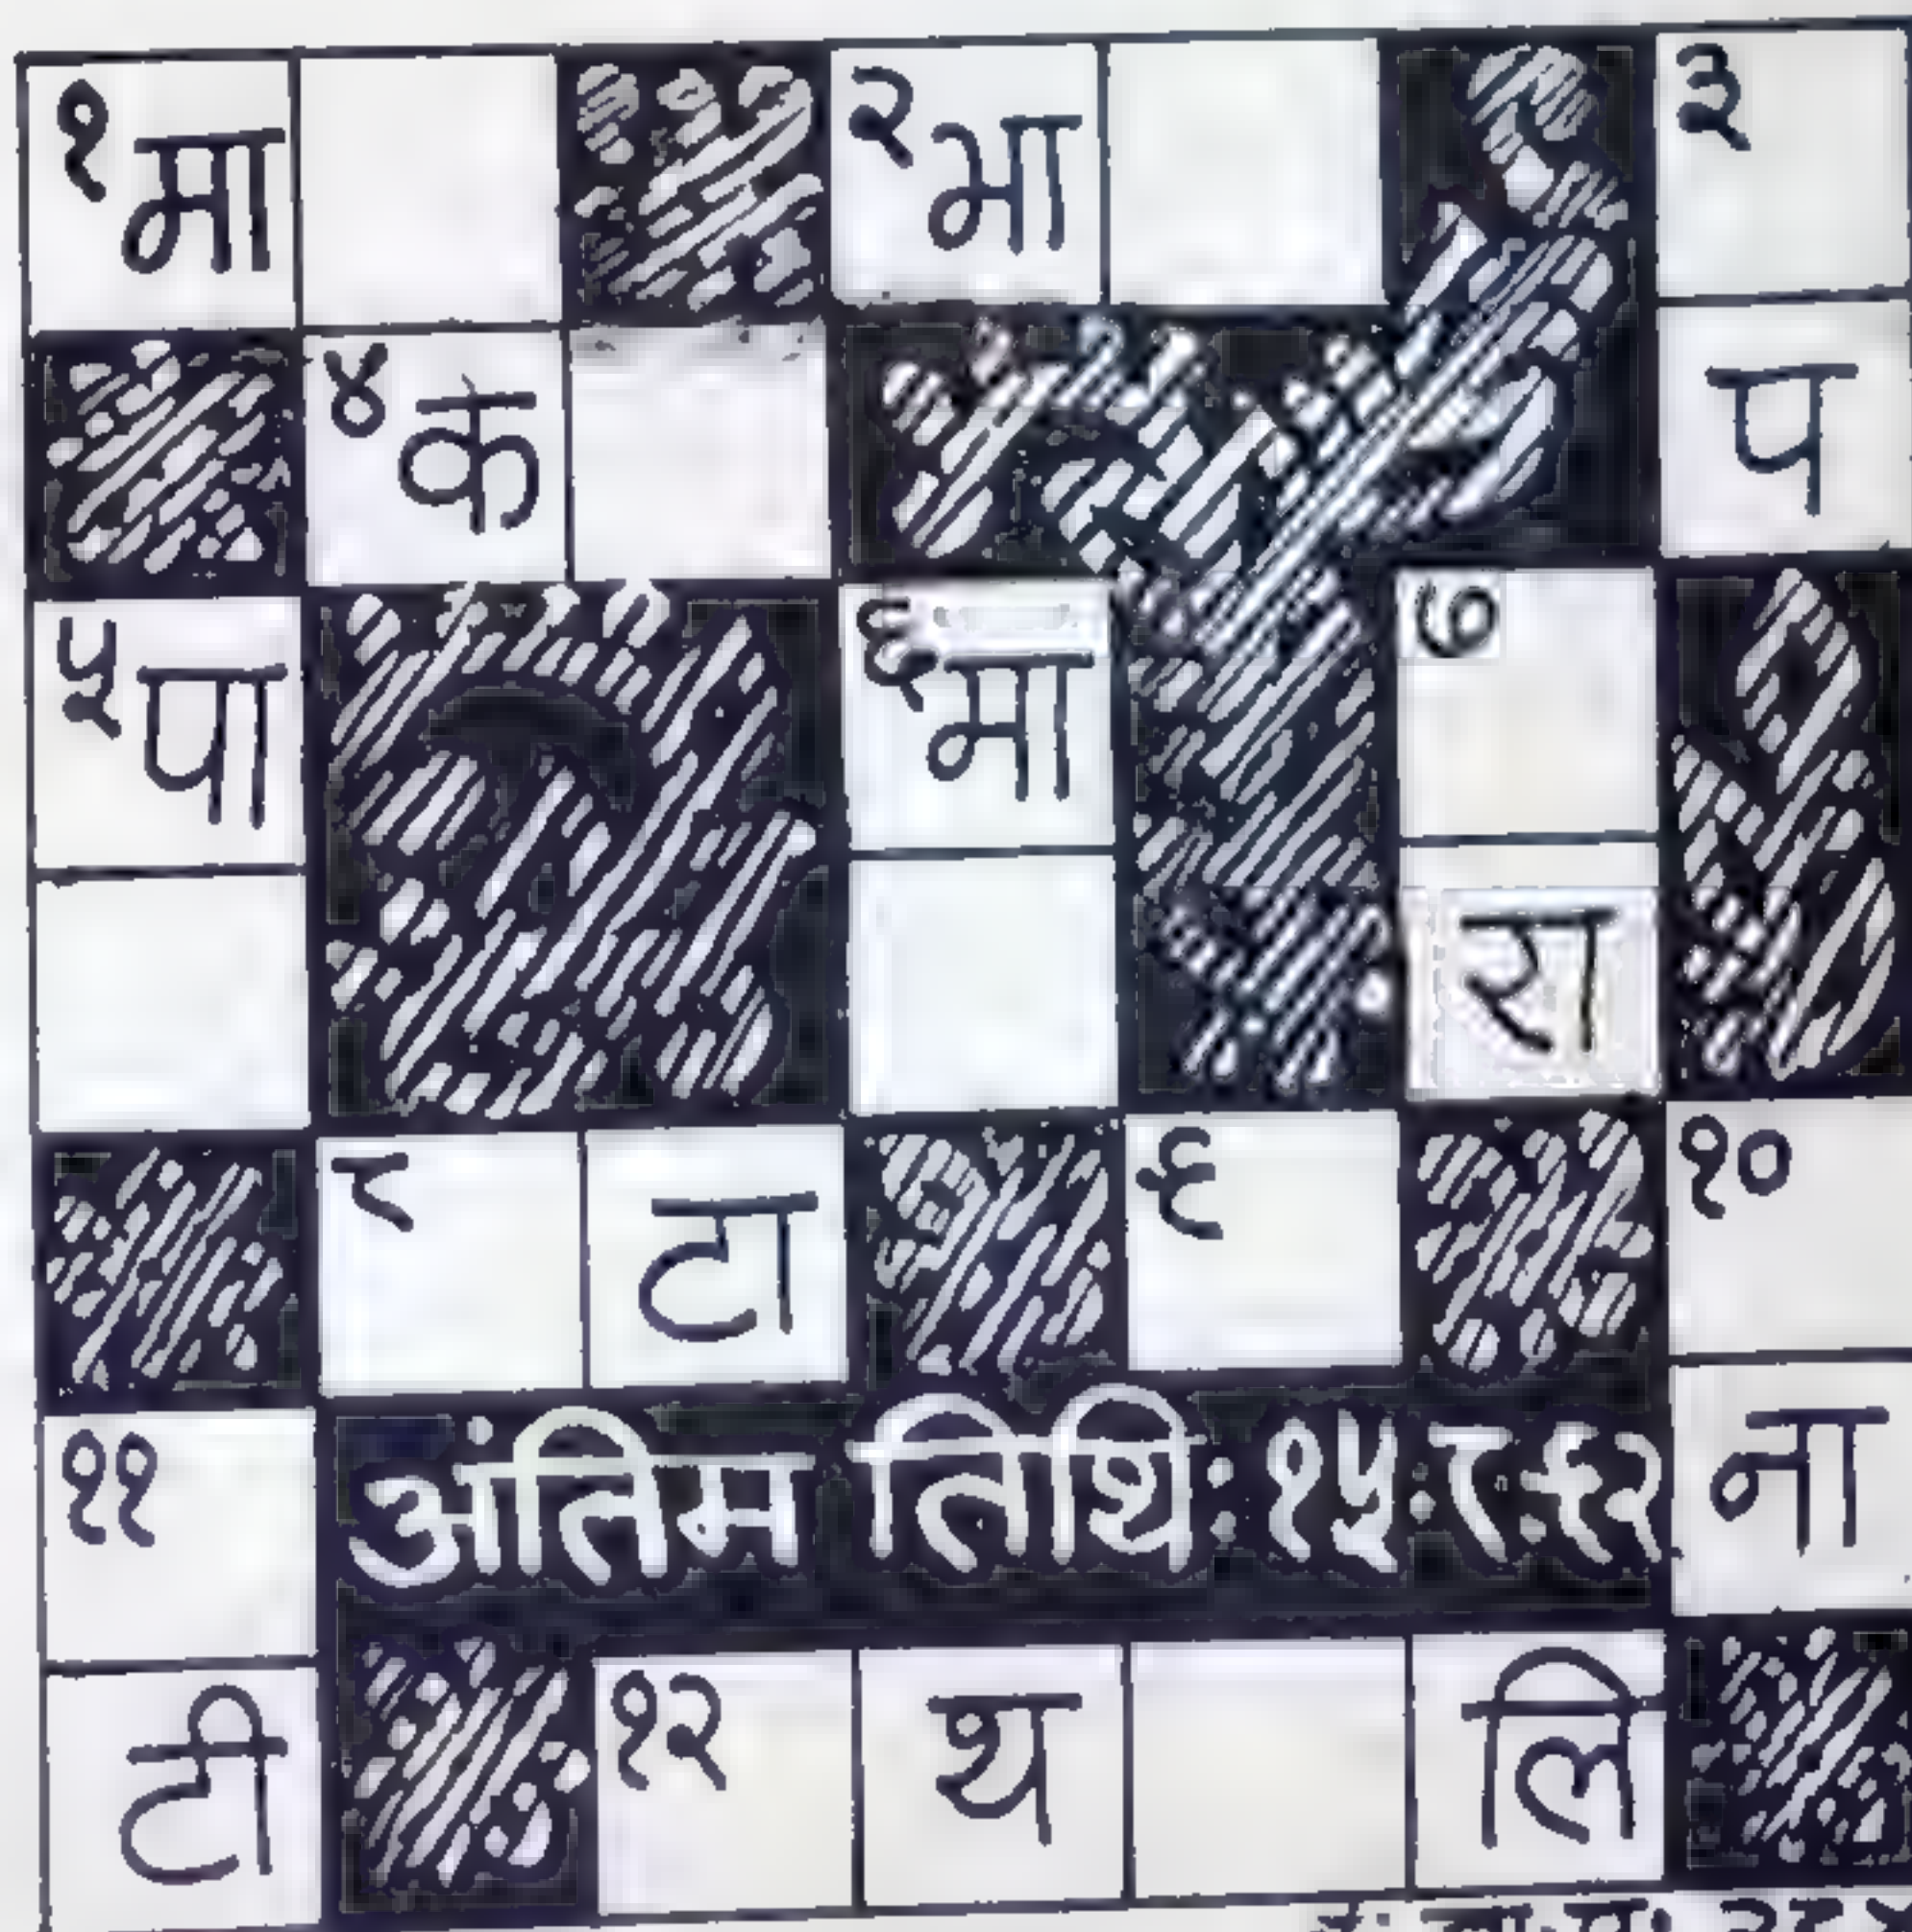 १ मा २ भा ३
४ क प
५ पा ६ भा ७
रा
८ टा ९ १०
११ अंतिम तिथि: १५.८.९२ ना
टी १२ थ लि